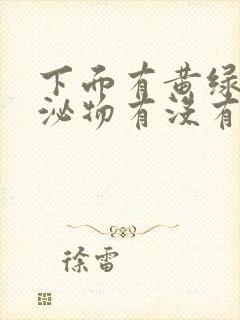 下而有黄绿
泌物有没有
徐雷